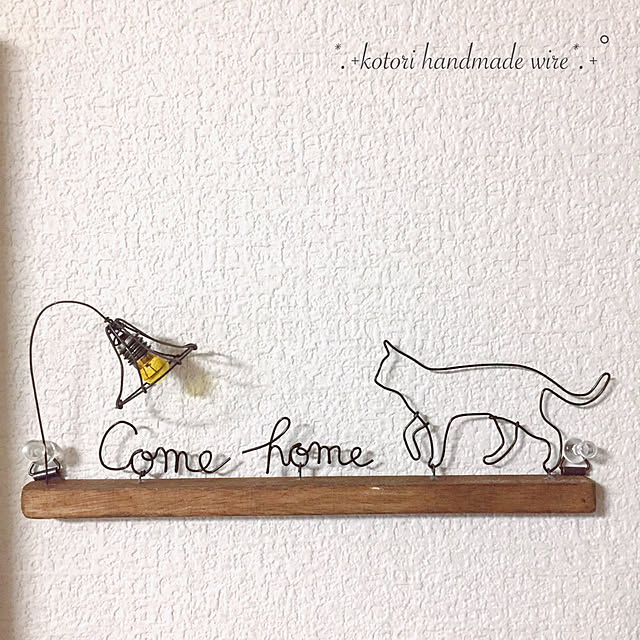 *.+kotori handmade wire*.+°
Come home